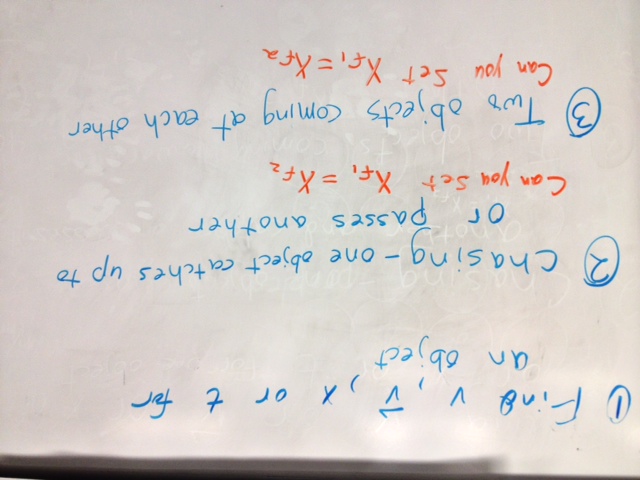 ① Find v, v⃗, x or t for
an object
② Chasing - one object catches up to
or passes another
Can you set Xf₁ = Xf₂
③ Two objects coming at each other
Can you set Xf₁ = Xf₂